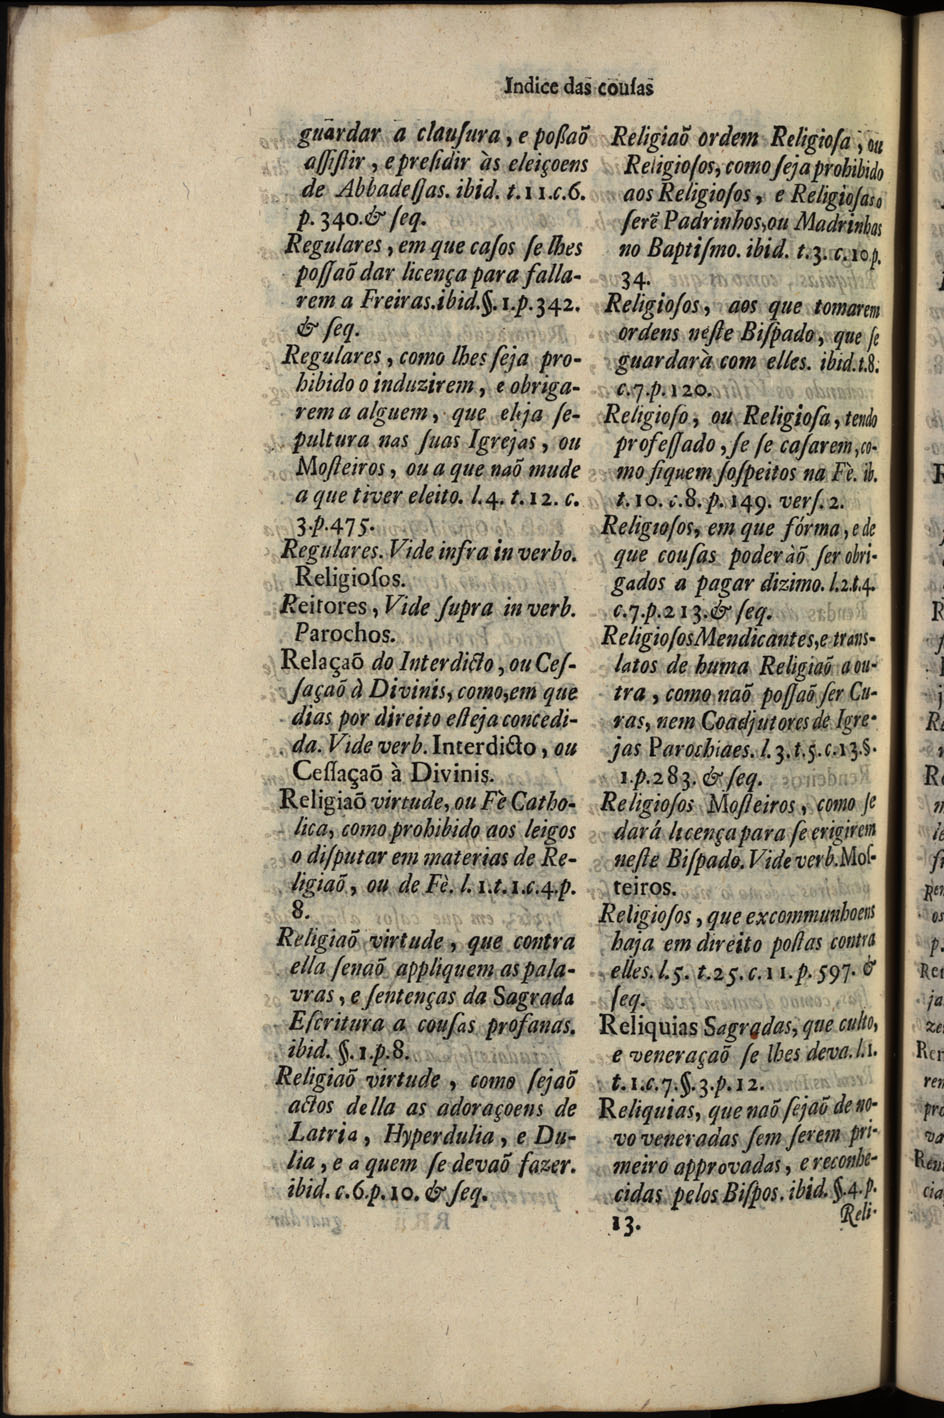 Indice das cousas
guardar a clauſura, e poßaõ
aſſiſtir, e preſidir às eleiçoens
de Abbadeſſas. ibid. t. 11. c. 6.
p. 340. & ſeq.
Regulares, em que caſos ſe lhes
poſſaõ dar licença para falla-
rem a Freiras. ibid. §. 1. p. 342.
& ſeq.
Regulares, como lhes ſeja pro-
hibido o induzirem, e obriga-
rem a alguem, que eleja ſe-
pultura nas ſuas Igrejas, ou
Moſteiros, ou a que naõ mude
a que tiver eleito. l. 4. t. 12. c.
3. p. 475.
Regulares. Vide infra in verbo.
Religioſos.
Reitores, Vide ſupra in verb.
Parochos.
Relaçaõ do Interdicto, ou Ceſ-
ſaçaõ à Divinis, como, em que
dias por direito eſteja concedi-
da. Vide verb. Interdicto, ou
Ceſſaçaõ à Divinis.
Religiaõ virtude, ou Fè Catho-
lica, como prohibido aos leigos
o diſputar em materias de Re-
ligiaõ, ou de Fè. l. 1. t. 1. c. 4. p.
8.
Religiaõ virtude, que contra
ella ſenaõ appliquem as pala-
vras, e ſentenças da Sagrada
Eſcritura a couſas profanas.
ibid. §. 1. p. 8.
Religiaõ virtude, como ſejaõ
actos della as adoraçoens de
Latria, Hyperdulia, e Du-
lia, e a quem ſe devaõ fazer.
ibid. c. 6. p. 10. & ſeq.
Religiaõ ordem Religioſa, ou
Religioſos, como ſeja prohibido
aos Religioſos, e Religioſas o
ſerẽ Padrinhos, ou Madrinhas
no Baptiſmo. ibid. t. 3. c. 10 p.
34.
Religioſos, aos que tomarem
ordens neſte Biſpado, que ſe
guardarà com elles. ibid. t. 8.
c. 7. p. 120.
Religioſo, ou Religioſa, tendo
profeſſado, ſe ſe caſarem, co-
mo fiquem ſoſpeitos na Fè. ib.
t. 10. c. 8. p. 149. verſ. 2.
Religioſos, em que fórma, e de
que couſas poderàõ ſer obri-
gados a pagar dizimo. l. 2. t. 4.
c. 7. p. 213. & ſeq.
Religioſos Mendicantes, e trans-
latos de huma Religiaõ a ou-
tra, como naõ poſſaõ ſer Cu-
ras, nem Coadjutores de Igre-
jas Parochiaes. l. 3. t. 5. c. 13. §.
1. p. 283. & ſeq.
Religioſos Moſteiros, como ſe
dará licença para ſe erigirem
neſte Biſpado. Vide verb. Moſ-
teiros.
Religioſos, que excommunhoens
haja em direito poſtas contra
elles. l. 5. t. 25. c. 11. p. 597. &
ſeq.
Reliquias Sagradas, que culto,
e veneraçaõ ſe lhes deva. l. 1.
t. 1. c. 7. §. 3. p. 12.
Reliquias, que naõ ſejaõ de no-
vo veneradas ſem ſerem pri-
meiro approvadas, e reconhe-
cidas pelos Biſpos. ibid. §. 4. p.
13.
Reli-